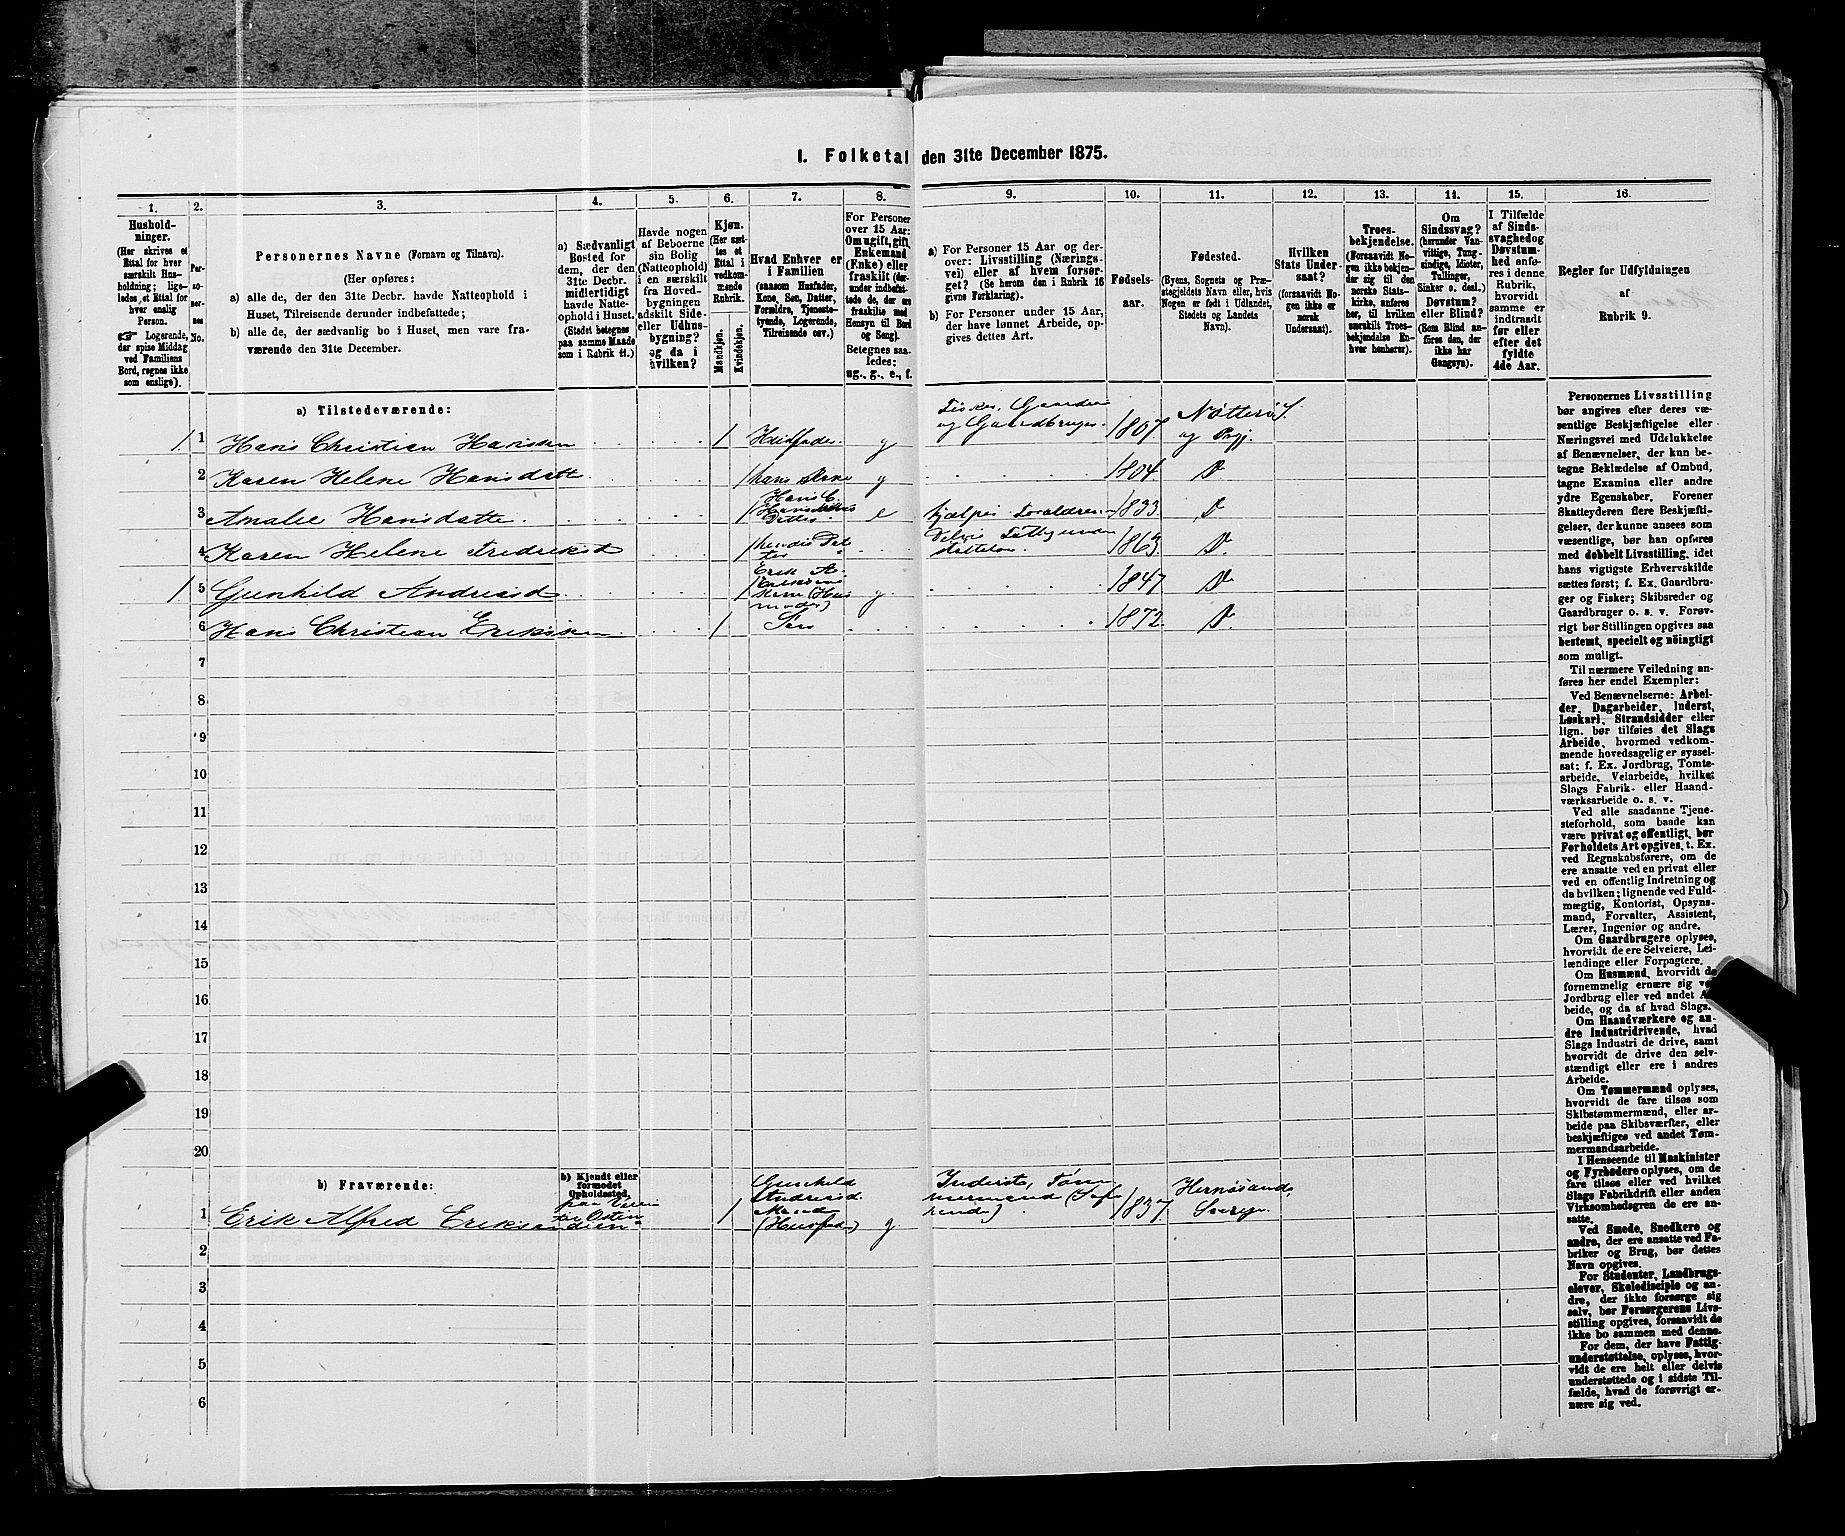 1. Folketal den 31te December 1875.
1. 2. 3. 4. 5. 6. 7. 8. 9. 10. 11. 12. 13. 14. 15. 16.
Hushold-
ninger.
(Her skrives et
Ettal for hver
særskilt Hus-
holdning; lige-
ledes et Ettal for
hver enslig
Person.
☛ Logerende,
der spise Middag
ved Familiens
Bord, regnes ikke
som enslige).
Per-
so-
ner-
nes
No.
Personernes Navne (Fornavn og Tilnavn).
(Her opføres:
a) alle de, der den 31te Decbr. havde Natteophold i
Huset, Tilreisende derunder indbefattede;
b) alle de, der sædvanlig bo i Huset, men vare fra-
værende den 31te December.
a) Sædvanligt
Bosted for
dem, der den
31te Decbr.
midlertidigt
havde Natte-
ophold i Huset.
(Stedet betegnes
paa samme Maade
som i Rubrik 11.)
Havde nogen
af Beboerne
sin Bolig
(Natteophold)
i en særskilt
fra Hoved-
bygningen
adskilt Side-
eller Udhus-
bygning?
og da i
hvilken?
Kjøn.
(Her sæt-
tes et
Ettal i
vedkom-
mende
Rubrik.
Mandkjøn.
Kvindekjøn.
Hvad Enhver er
i Familien
(saasom Husfader,
Kone, Søn, Datter,
Forældre, Tjeneste-
tyende, Logerende,
Tilreisende osv.)
For Personer
over 15 Aar:
Om ugift, gift,
Enkemand
(Enke) eller
fraskilt (der-
under indbefat-
tede de, der ere
fraskilte med
Hensyn til Bord
og Seng).
Betegnes saa-
ledes:
ug., g., e., f.
a) For Personer 15 Aar og der-
over: Livsstilling (Nærings-
vei) eller af hvem forsør-
get? (Se herom den i Rubrik 16
givne Forklaring).
b) For Personer under 15 Aar,
der have lønnet Arbeide, op-
gives dettes Art.
Fødsels-
aar.
Fødested.
(Byens, Sognets og Præ-
stegjeldets Navn eller, hvis
Nogen er født i Udlandet,
Stedets og Landets
Navn).
Hvilken
Stats Under-
saat?
(forsaavidt No-
gen ikke er
norsk
Undersaat).
Troes-
bekjendelse.
(Forsaavidt No-
gen ikke bekjen-
der sig til den
norske Stats-
kirke, anføres
her, til hvilken
særskilt Troes-
bekjendelse En-
hver henhører).
Om
Sindssvag?
(herunder Van-
vittige, Tung-
sindige, Idioter,
Tullinger,
Sinker o. desl.)
Døvstum?
eller Blind?
(Som Blind an-
føres den, der
ikke har
Gangsyn).
I Tilfælde
af Sinds-
svaghed og
Døvstum-
hed anfø-
res i denne
Rubrik,
hvorvidt
samme er
indtraadt
før eller
efter det
fyldte
4de Aar.
Regler for Udfyldningen
af
Rubrik 9.
a) Tilstedeværende:
1 1 Hans Christian Hansen 1 Husfader g Fisker, Gaardeier og Gaardbruger 1807 Nøtterø S. og Prgj.
2 Karen Helene Hansdatte 1 hans Kone g 1804 D
3 Amalie Hansdatte 1 Hans C. Hansens Datter e hjælper Forældrene 1833 D
4 Karen Helene Fredriksd 1 hendes Datter 1863 D.
1 5 Gunhild Andreasd 1 Erik A. Eriksens Kone (Husmoder) g. 1847 D
6 Hans Christian Eriksen 1 Søn 1872 D.
7
8
9
10
11
12
13
14
15
16
17
18
19
20
b) Fraværende:
b) Kjendt eller
formodet
Opholdssted.
1 Erik Alfred Eriksen 1 Gunhild Andreasd. Mand (Husfader) g Inderst, Tømmermand (Søfarende) 1837 Hernøsand, Sverige.
2
3
4
5
6
Personernes Livsstilling
bør angives efter deres væ-
sentlige Beskjæftigelse eller
Næringsvei med Udelukkelse
af Benævnelser, der kun be-
tegne Beklædelse af Ombud,
tagne Examina eller andre
ydre Egenskaber. Forener
Skatteyderen flere Beskjæfti-
gelser, der kunne ansees som
væsentlige, bør han opføres
med dobbelt Livsstilling, idet
hans vigtigste Erhvervskilde
sættes først; f. Ex. Gaardbru-
ger og Fisker; Skibsreder og
Gaardbruger o. s. v. Forøv-
rigt bør Stillingen opgives saa
bestemt, specielt og nöiagtigt
som muligt.
Til nærmere Veiledning an-
føres her endel Exempler:
Ved Benævnelserne: Arbei-
der, Dagarbeider, Inderst,
Løskarl, Strandsidder eller
lign. bør tilføies det Slags
Arbeide, hvormed vedkom-
mende hovedsagelig er syssel-
sat: f. Ex. Jordbrug, Tomte-
arbeide, Veiarbeide, hvilket
Slags Fabrik- eller Haand-
værksarbeide o. s. v.
Ved alle saadanne Tjene-
steforhold, som baade kan
være privat og offentligt, bør
Forholdets Art opgives, t. Ex.
ved Regnskabsførere, om de
ere ansatte ved en privat eller
ved en offentlig Indretning og
da hvilken; lignende ved Fuld-
mægtig, Kontorist, Opsyns-
mand, Forvalter, Assistent,
Lærer, Ingeniør og andre.
Om Gaardbrugere oplyses,
hvorvidt de ere Selveiere, Lei-
lændinge eller Forpagtere.
Om Husmænd, hvorvidt de
fornemmelig ernære sig ved
Jordbrug eller ved andet Ar-
beide, og da af hvad Slags.
Om Haandværkere og an-
dre Industridrivende, hvad
Slags Industri de drive, samt
hvorvidt de drive den selv-
stændigt eller ere i andres
Arbeide.
Om Tømmermænd oplyses,
hvorvidt de fare tilsøs som
Skibstømmermænd, eller ar-
beide paa Skibsværfter, eller
beskjæftiges ved andet Tøm-
mermandsarbeide.
I Henseende til Maskinister
og Fyrbødere oplyses, om de
fare tilsøs eller ved hvilket
Slags Fabrikdrift eller anden
Virksomhedsgren de ere an-
satte.
Ved Smede, Snedkere og
andre, der ere ansatte ved Fa-
briker og Brug, bør dettes
Navn opgives.
For Studenter, Landbrugs-
elever, Skoledisciple og an-
dre, der ikke forsørge sig
selv, bør Forsørgerens Livs-
stilling opgives, forsaavidt de
ikke bo sammen med denne.
For dem, der have Fattig-
understøttelse, oplyses, hvor-
vidt de ere helt eller delvis
understøttede og i sidste Til-
fælde, hvad de forøvrigt er-
nære sig ved.